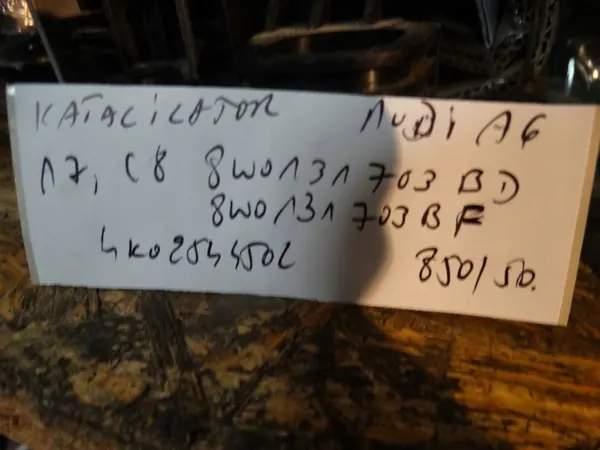 KATALICATOR AUDI A6
A7, C8 8W0131703BD
8W0131703BF
4K0254450C 850/50.